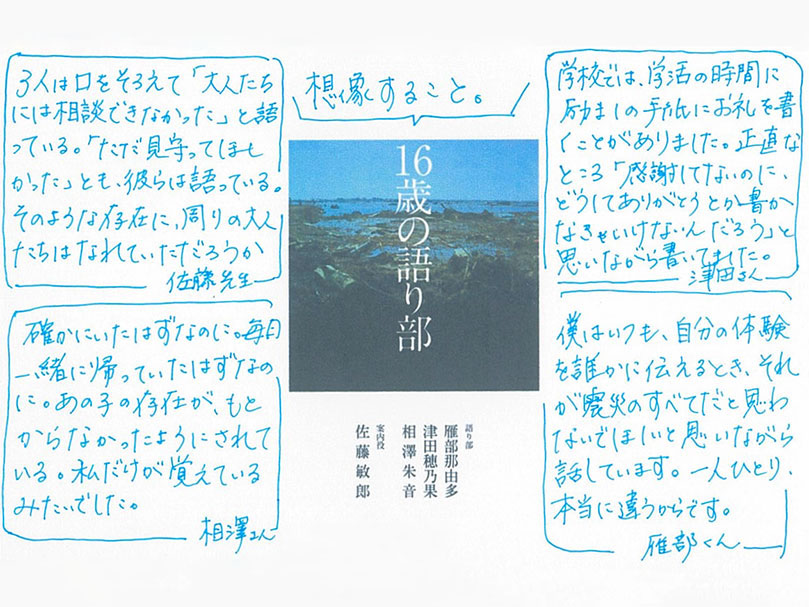 想像すること。
3人は口をそろえて「大人たち
には相談できなかった」と語
っている。「ただ見守ってほし
かった」とも、彼らは語っている。
そのような存在に、周りの大人
たちはなれていただろうか
佐藤先生
確かにいたはずなのに。毎日
一緒に帰っていたはずなの
に。あの子の存在が、もと
からなかったようにされて
いる。私だけが覚えている
みたいでした。
相澤さん
16歳の語り部
語り部
雁部那由多
津田穂乃果
相澤朱音
案内役
佐藤敏郎
学校では、学活の時間に
励ましの手紙にお礼を書
くことがありました。正直な
ところ「感謝してないのに、
どうしてありがとうとか書か
なきゃいけないんだろう」と
思いながら書いてました。
津田さん
僕はいつも、自分の体験
を誰かに伝えるとき、それ
が震災のすべてだと思わ
ないでほしいと思いながら
話しています。一人ひとり、
本当に違うからです。
雁部くん